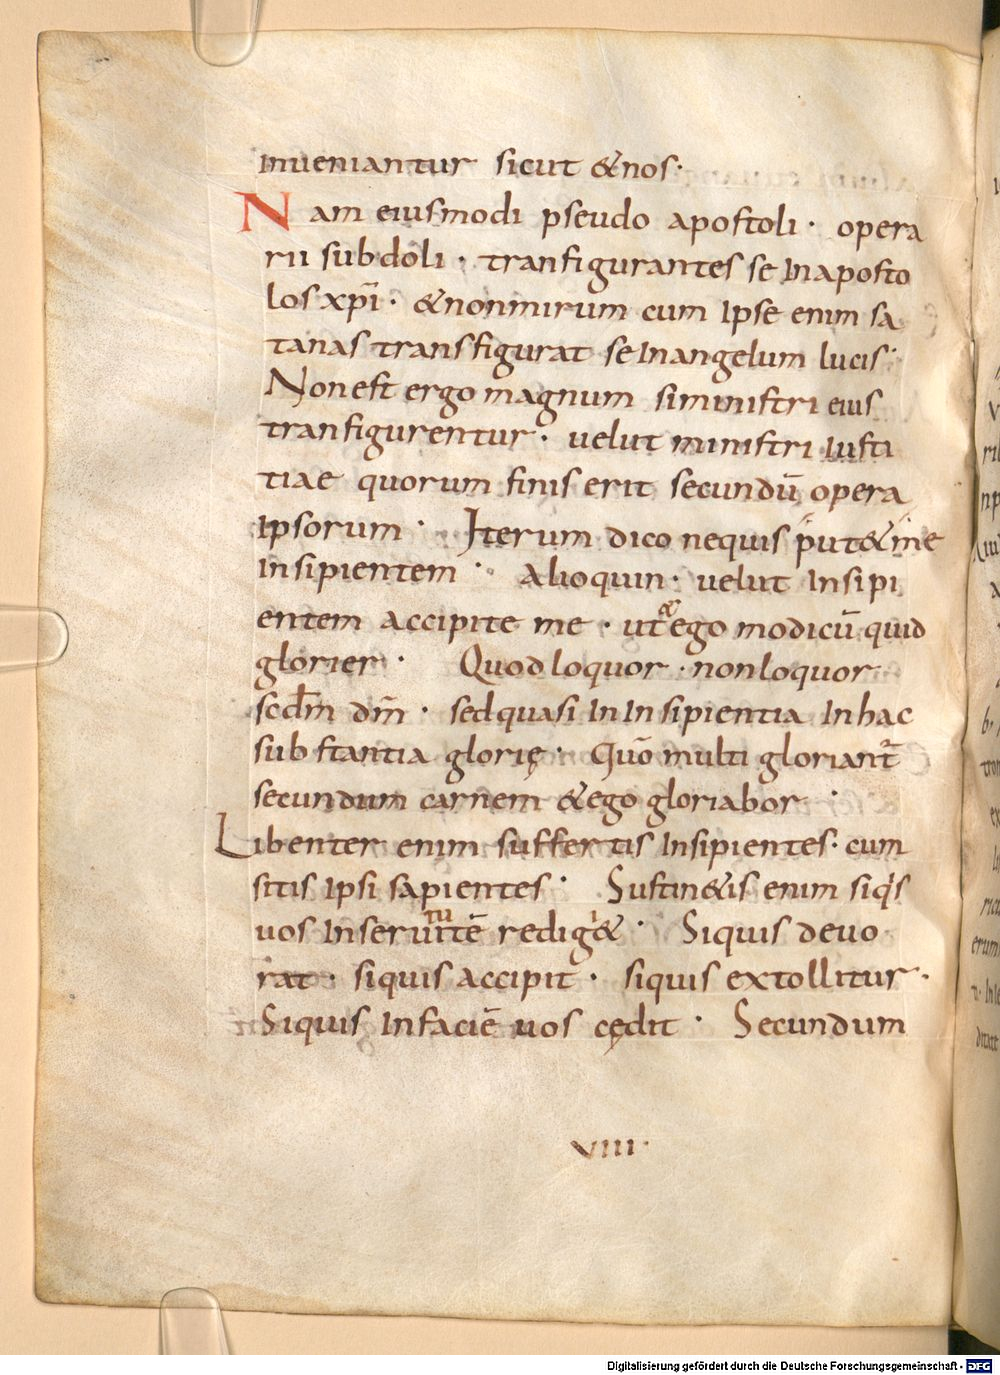 Inueniantur sicut & nos·
Nam eiusmodi pseudo apostoli · opera
rii subdoli · tranfigurantes se Inaposto
los xp̄i · & non mirum cum Ipse enim sa
tanas transfigurat se Inangelum lucis·
Non est ergo magnum si ministri eius
tranfigurentur · uelut ministri Iusti
tiae quorum finis erit secundū opera
Ipsorum · Iterum dico nequis put& me
Insipientem · Alioquin · uelut Insipi
entem accipite me · ut & ego modicū quid
glorier · Quod loquor · non loquor
scd̄m dn̄m · sed quasi In Insipientia In hac
substantia glorię · Quō multi gloriant᷑
secundum carnem & ego gloriabor ·
Libenter enim suffertis Insipientes· cum
sitis Ipsi sapientes · Sustin&is enim siqͥs
uos Inseruitutē redigͥ& · Siquis deuo
rat · siquis accipit · siquis extollitur ·
Siquis Infaciē uos cędit · Secundum
VIII·
Digitalisierung gefördert durch die Deutsche Forschungsgemeinschaft - DFG